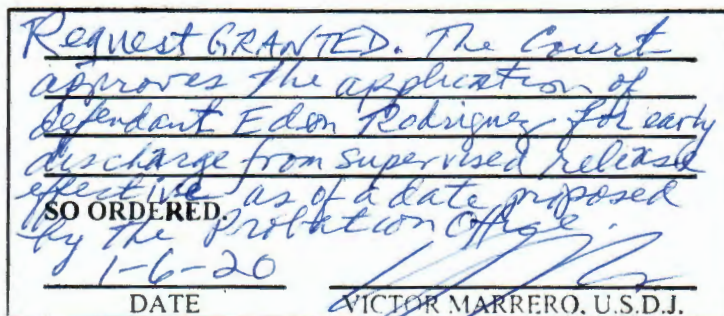 Request GRANTED. The Court
approves the application of
defendant Edson Rodriguez for early
discharge from supervised release
effective as of a date proposed
SO ORDERED.
by the Probation Office.
1-6-20
DATE VICTOR MARRERO, U.S.D.J.